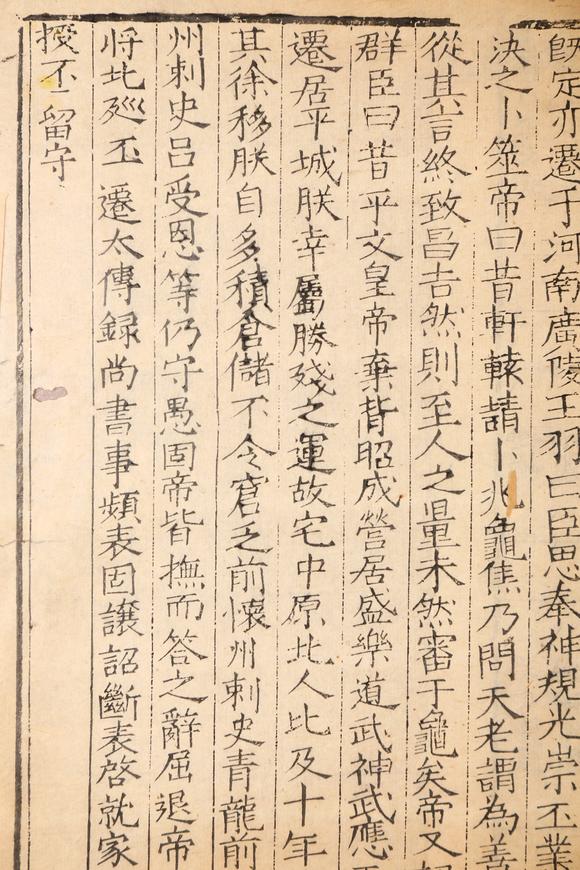 既定亦遷于河南廣陵王羽曰臣思奉神規光崇丕業
決之卜筮帝曰昔軒轅請卜兆龜焦乃問天老謂為善
從其言終致昌吉然則至人之量未然審于龜矣帝又
群臣曰昔平文皇帝棄背昭成營居盛樂道武神武應
遷居平城朕幸屬勝殘之運故宅中原北人比及十年
其徐移朕自多積倉儲不令窘乏前懷州刺史青龍前
州刺史呂受恩等仍守愚固帝皆撫而答之辭屈退帝
將北巡丕遷太傅錄尚書事頻表固讓詔斷表啓就家
授丕留守